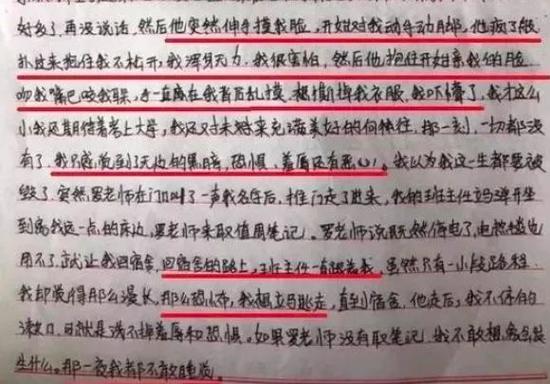 好多了,再没说话,然后他突然伸手摸我脸,开始对我动手动脚,他疯了般
扑过来抱住我不松开,我浑身无力,我很害怕,然后他抱住开始亲我的脸
咬我嘴巴咬我耳朵,手一直在我背后乱摸,想撕掉我衣服,我吓懵了,我才这么
小我还期待着考上大学,我还对未来充满美好的向往,那一刻,一切都没
有了,我只感觉到了无边的黑暗,恐惧、羞辱还有恶心,我以为我这一生都要被
毁了,突然罗老师在门口叫了一声我名字后,推门走了进来,我的班主任立马弹开坐
到离我远一点的床边,罗老师来取值周笔记。罗老师说既然停电了,电热毯也
用不了,就让我回宿舍,回宿舍的路上,班主任一直跟着我,虽然只有一小段路程
我却觉得那么漫长,那么恐怖,我想立马逃走,直到宿舍,他走后,我不停的
漱口,可就是洗不掉羞辱和恐惧。如果罗老师没有取笔记,我不敢想象会发
生什么。那一夜我都不敢睡觉。